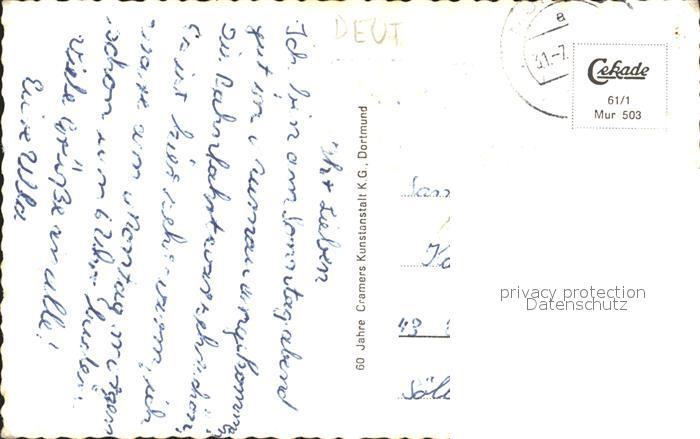 Ihr Lieben
Ich bin am Sonntag abend
gut in Murnau angekommen
Die Bahnfahrt war sehr schön,
Es ist hier sehr warm, ich
war am Montag morgen
schon um 6 Uhr
Viele Grüße an alle!
Eure Ulla
DEUT
31.-7.
a
Cekade
61/1
Mur 503
60 Jahre Cramers Kunstanstalt K.G., Dortmund
Fam
43
privacy protection
Datenschutz